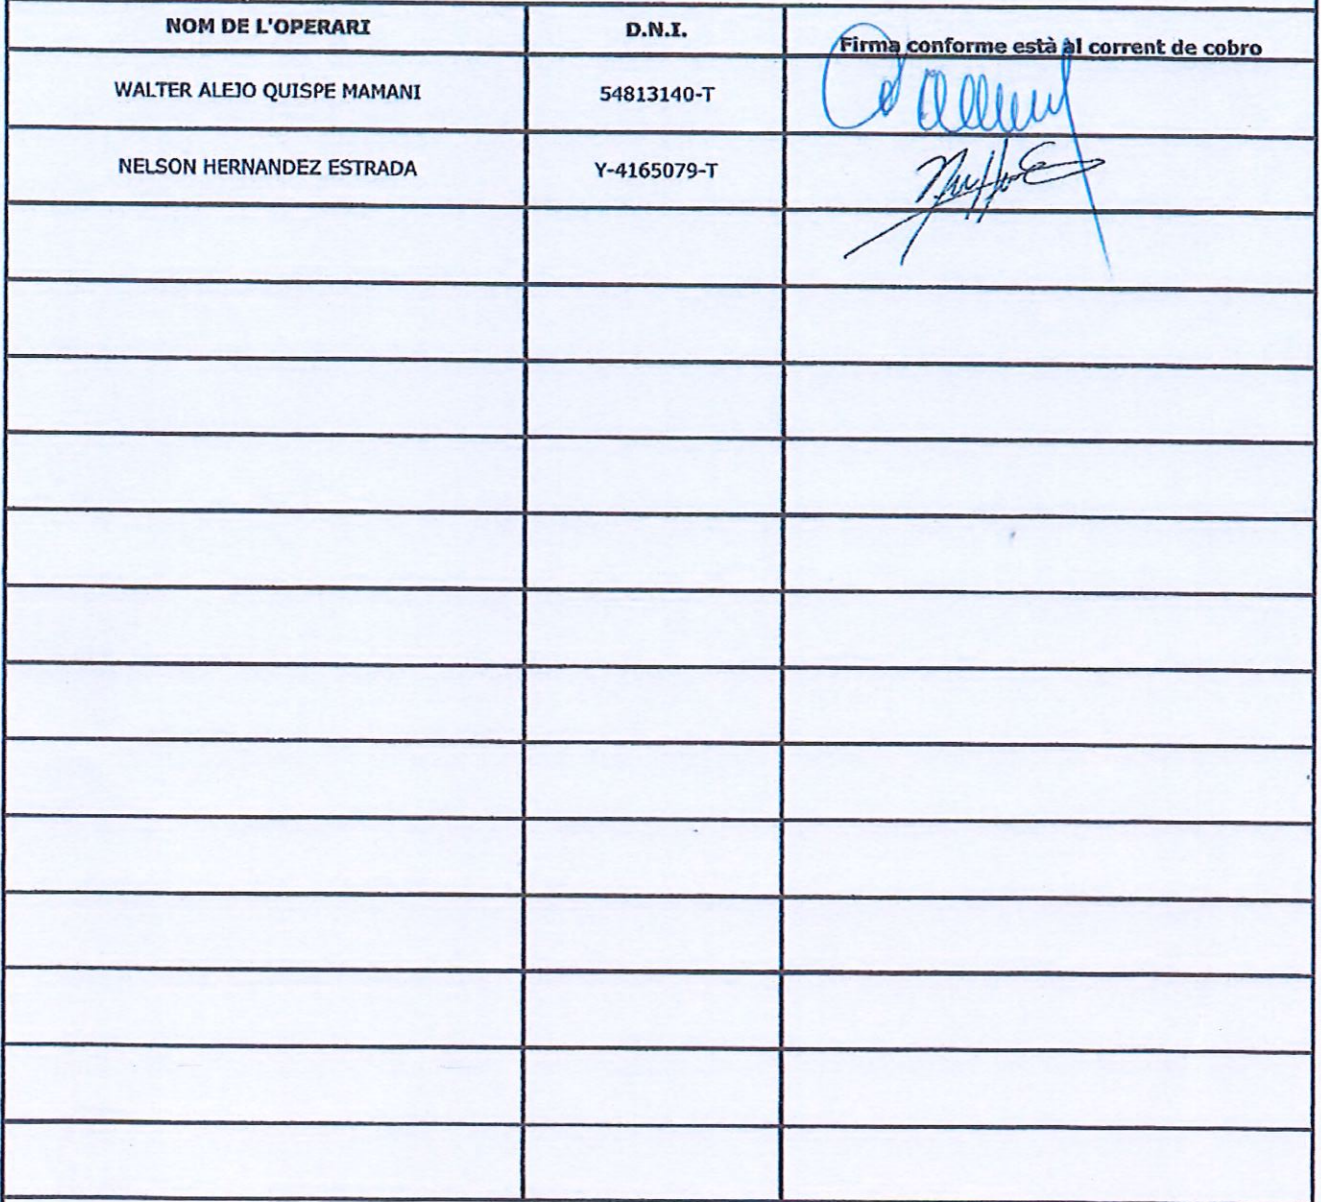 NOM DE L'OPERARI D.N.I. Firma conforme està al corrent de cobro
WALTER ALEJO QUISPE MAMANI 54813140-T
NELSON HERNANDEZ ESTRADA Y-4165079-T